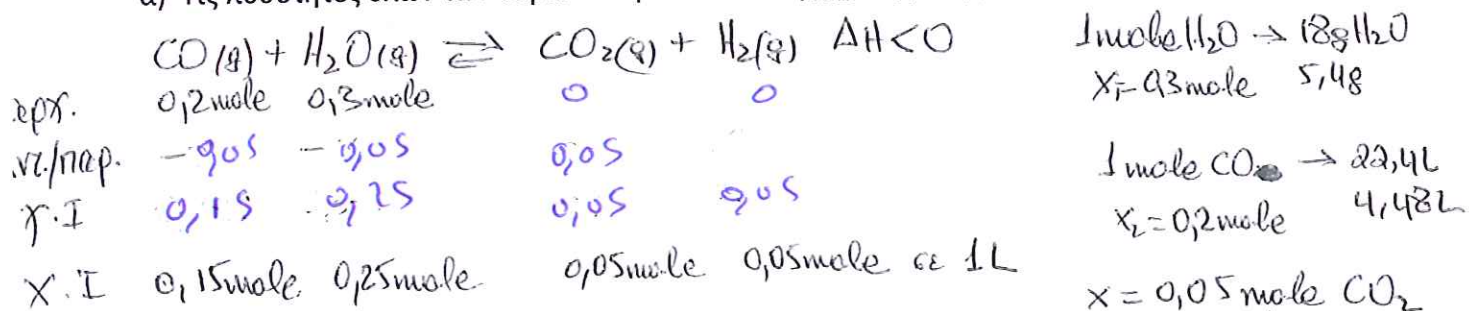 CO(g) + H₂O(g) ⇌ CO₂(g) + H₂(g) ΔH<0
αρχ. 0,2mole 0,3mole 0 0
αντ/παρ. -0,05 -0,05 0,05
Χ.Ι 0,15 0,25 0,05 0,05
Χ.Ι 0,15mole 0,25mole 0,05mole 0,05mole σε 1L
1mole H₂O → 18g H₂O
x₁=0,3mole 5,4g
1mole CO → 22,4L
x₂=0,2mole 4,48L
x = 0,05 mole CO₂